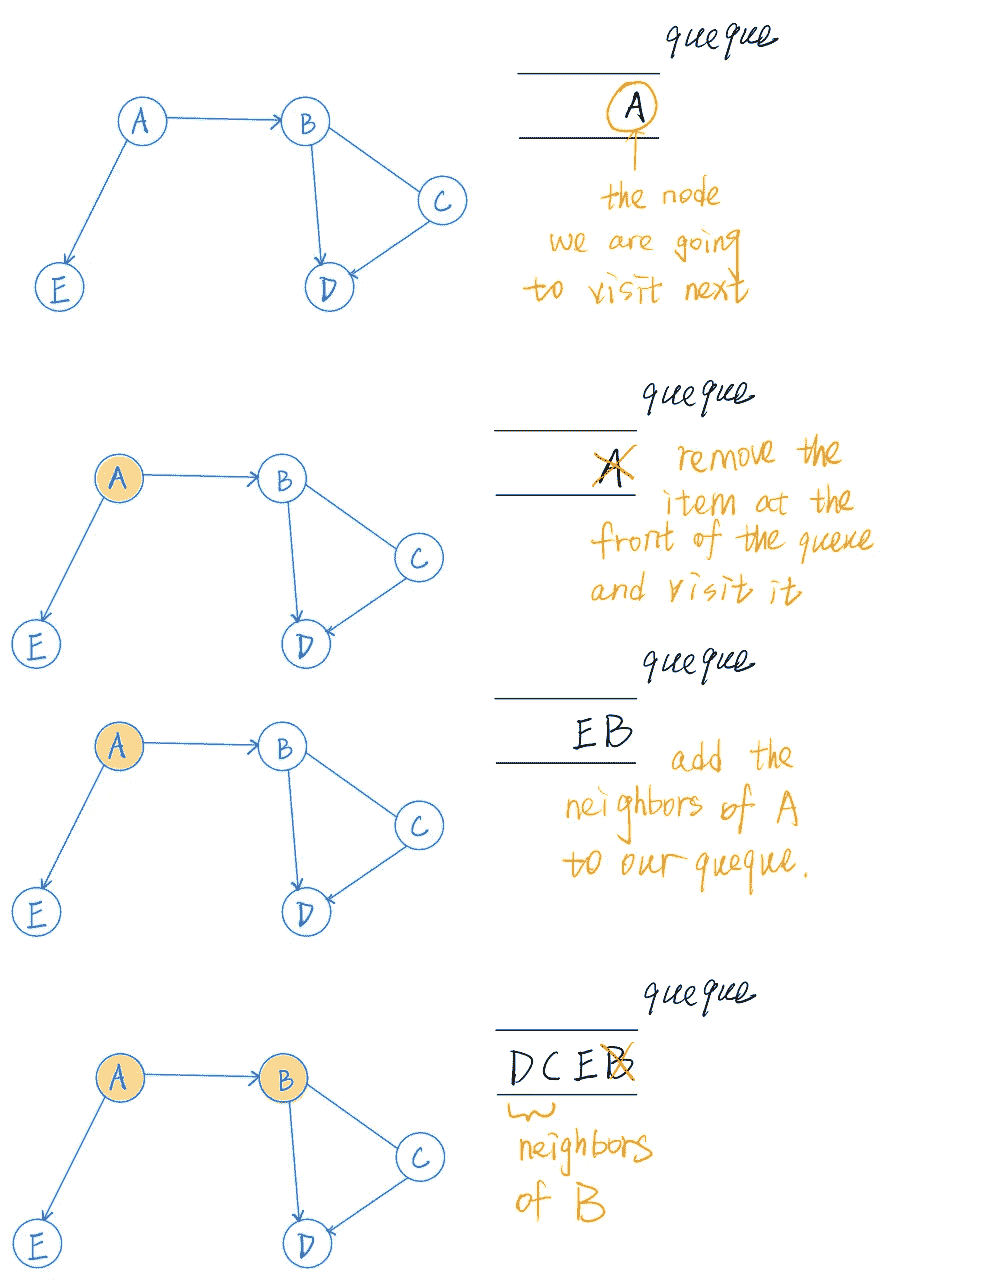 queque
A
B
A
C
the node
we are going
E
D
to visit next
queque
A
remove the
A
B
item at the
front of the queue
C
and visit it
E
D
queque
E B
A
B
add the
neighbors of A
C
to our queque.
E
D
queque
D C E B
A
B
neighbors
C
of B
E
D